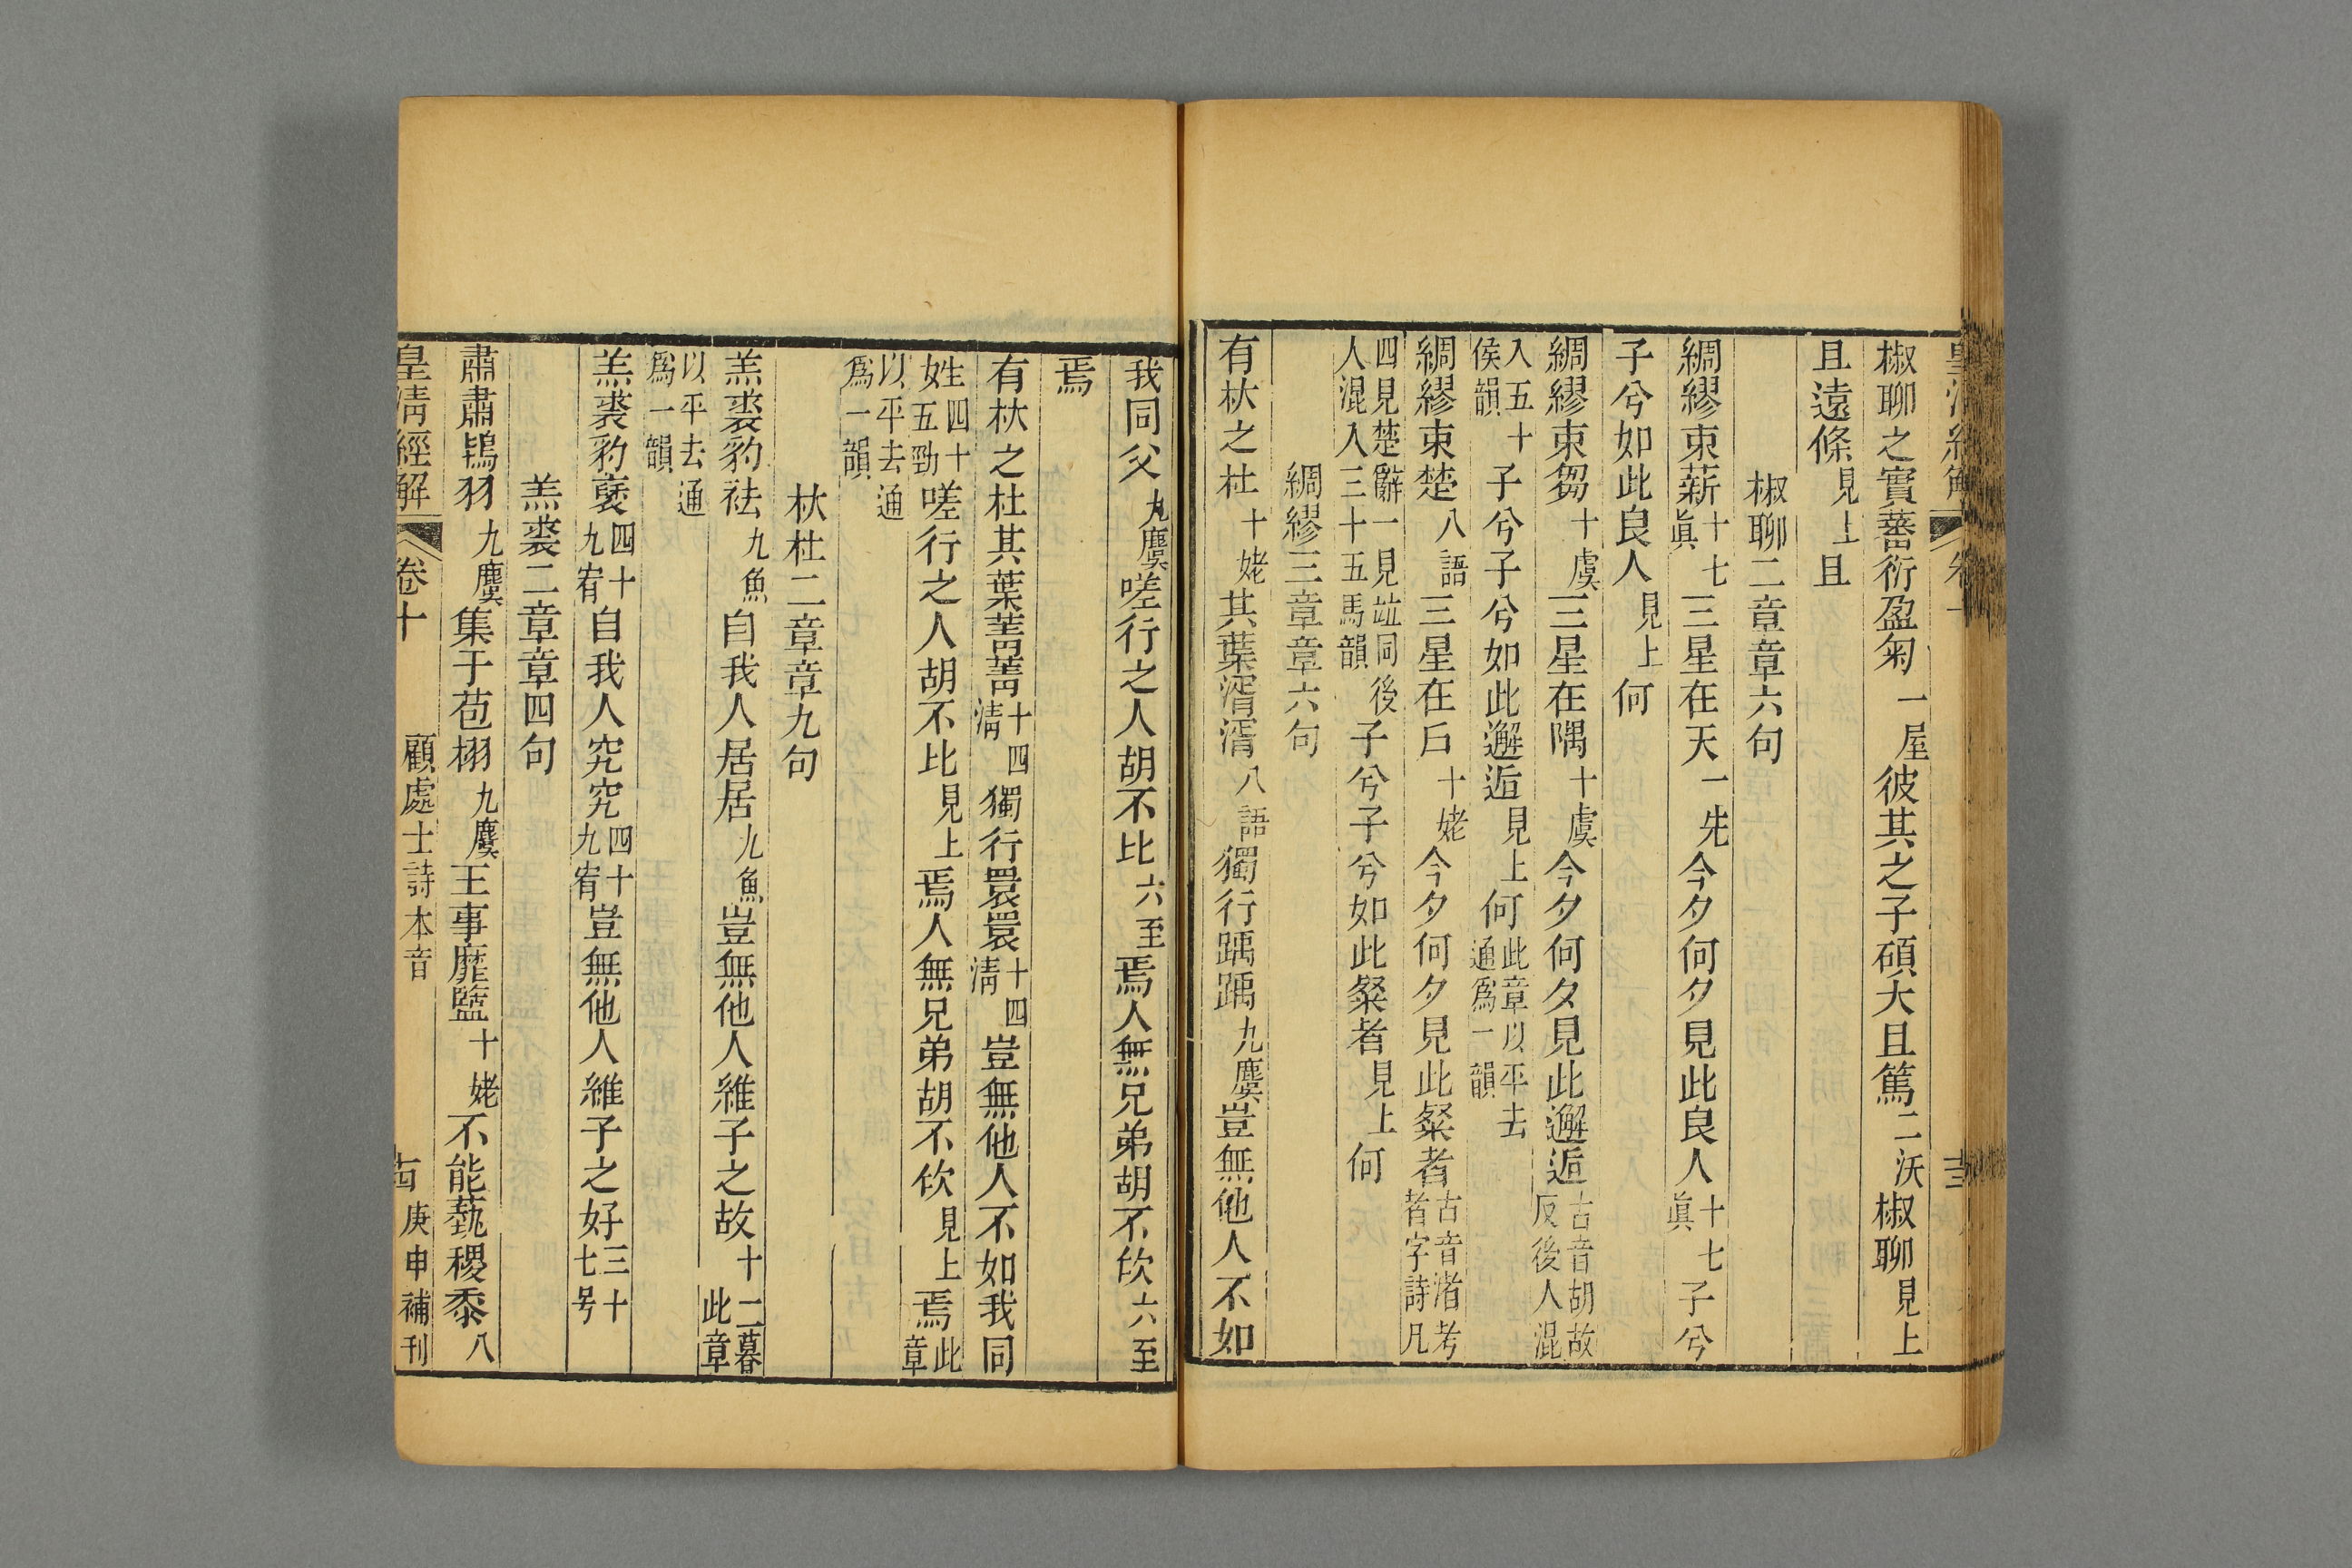 椒聊之實蕃衍盈匊一屋彼其之子碩大且篤二沃椒聊見上
且遠條見上且
椒聊二章章六句
綢繆束薪十七眞三星在天一先今夕何夕見此良人十七眞子兮
子兮如此良人見上何
綢繆束芻十虞三星在隅十虞今夕何夕見此邂逅古音胡故反後人混
入五十侯韻子兮子兮如此邂逅見上何此章以平去通爲一韻
綢繆束楚八語三星在戶十姥今夕何夕見此粲者古音渚考者字詩凡
四見楚辭一見竝同後人混入三十五馬韻子兮子兮如此粲者見上何
綢繆三章章六句
有杕之杜十姥其葉湑湑八語獨行踽踽九麌豈無他人不如
我同父九麌嗟行之人胡不比六至焉人無兄弟胡不佽六至
焉
有杕之杜其葉菁菁十四淸獨行睘睘十四淸豈無他人不如我同
姓四十五勁嗟行之人胡不比見上焉人無兄弟胡不佽見上焉此章
以平去通爲一韻
杕杜二章章九句
羔裘豹袪九魚自我人居居九魚豈無他人維子之故十一暮此章
以平去通爲一韻
羔裘豹褎四十九宥自我人究究四十九宥豈無他人維子之好三十七号
羔裘二章章四句
肅肅鴇羽九麌集于苞栩九麌王事靡盬十姥不能蓺稷黍八
皇淸經解
卷十
顧處士詩本音
庚申補刊